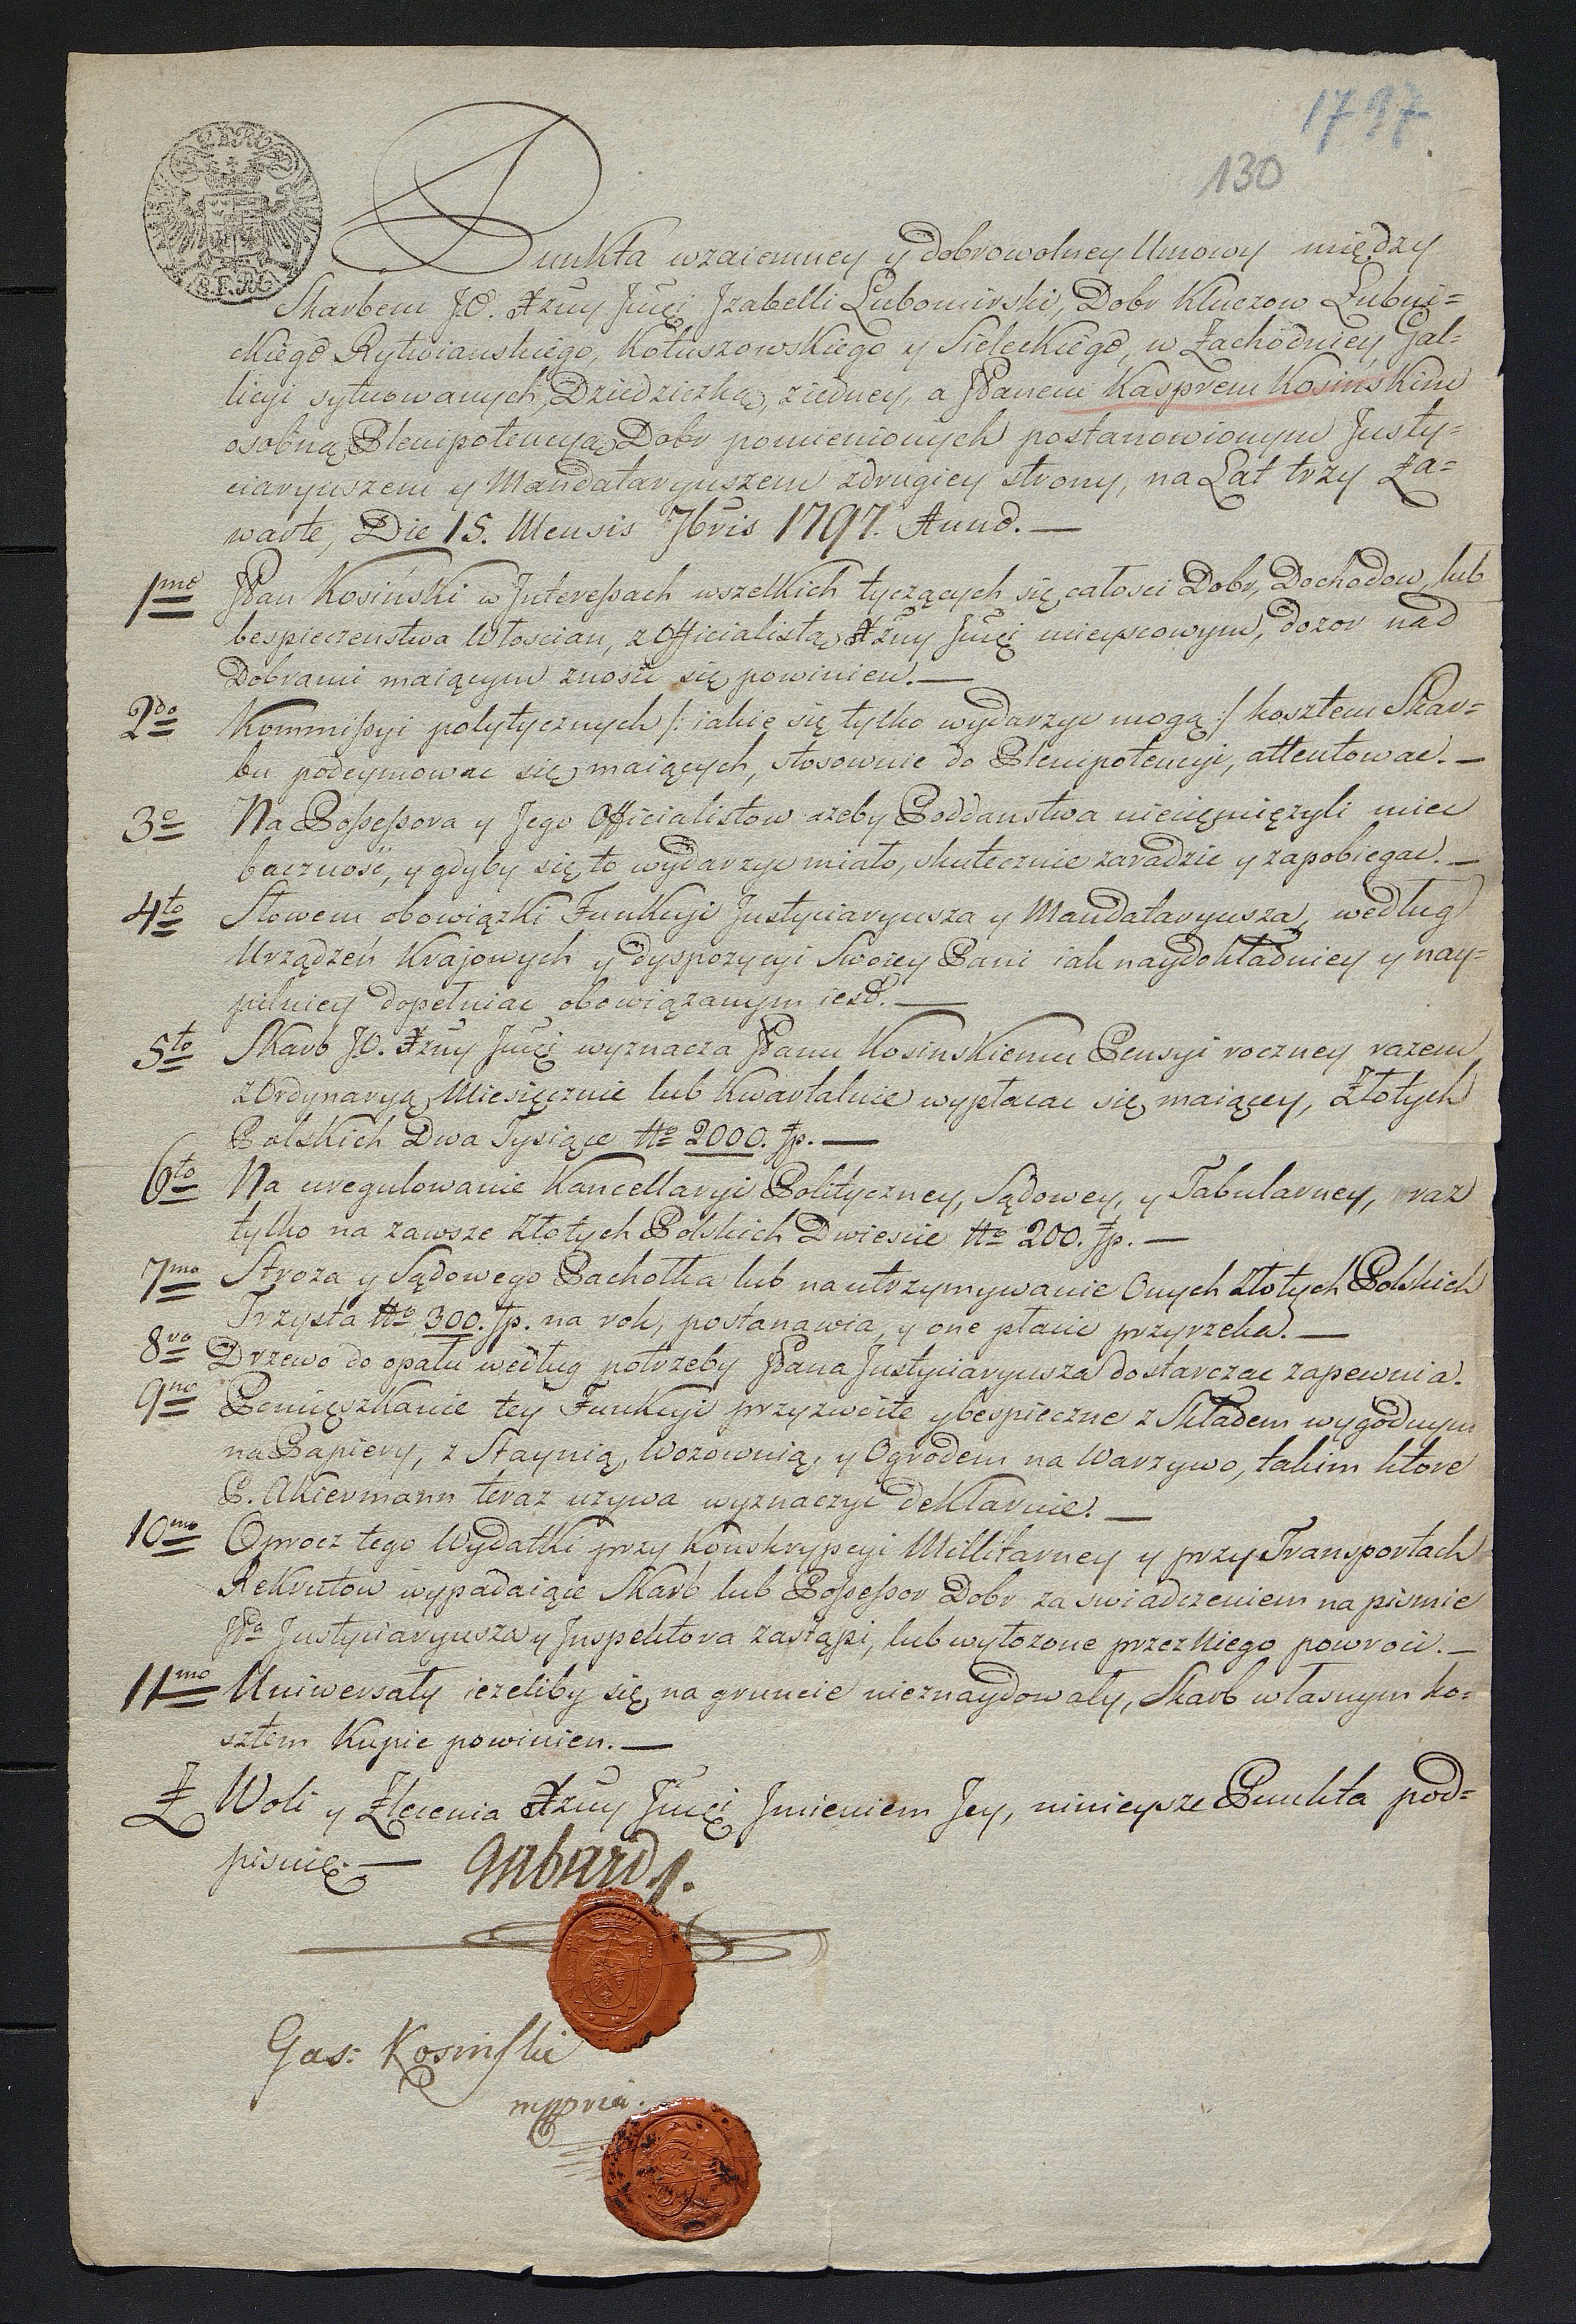 1797
130
Punkta wzaiemney y dobrowolney Umowy między
Skarbem JO. Xżny Jmci Izabelli Lubomirski, Dobr Kluczow Łubni=
ckiego Rytwianskiego, Kołuszowskiego y Sieleckiego, w Zachodniey Gal=
licyi sytuowanych, Dziedziczką, ziedney, a JPanem Kasprem Kosinskim
osobną Plenipotencyą Dobr pomienionych postanowionym Justy=
ciaryuszem y Mandataryuszem zdrugiey strony, na Lat trzy Za=
warte, Die 15. Mensis 7bris 1797. Anno.—
1mo JPan Kosiński w Interessach wszelkich tyczących się całosci Dobr, Dochodow, lub
bespieczenstwa Włoscian, z Officialistą Xżny Jmci mieyscowym, dozor nad
Dobrami maiącym znosić się powinien.—
2do Kommissyi polytycznych /: iakie się tylko wydarzyc mogą :/ kosztem Skar=
bu podeymowac się maiących, stosownie do Plenipotencyi, attentowac.—
3o Na Possessora y Jego Officialistow azeby Poddanstwa nieciemięzyli miec
bacznosć, y gdyby się to wydarzyc miało, skutecznie zaradzic y zapobiegac.—
4to Słowem obowiązki Funkcyi Justyciaryusza y Mandataryusza, według
Urządzeń Krajowych y dyspozycyi Swoiey Pani iak naydokładniey y nay=
pilniey dopełniac obowiązanym iest.—
5to Skarb JO. Xżny Jmci wyznacza JPanu Kosinskiemu Pensyi roczney razem
z Ordynaryą Miesięcznie lub Kwartalnie wypłacac się maiącey, Złotych
Polskich Dwa Tysiące No 2000. Zp.—
6to Na uregulowanie Kancellaryi Polityczney, Sądowey, y Tabularney, raz
tylko na zawsze Złotych Polskich Dwiescie No 200. Zp.—
7mo Stroza y Sądowego Pachołka lub na utrzymywanie Onych Złotych Polskich
Trzysta No 300. Zp. na rok, postanawia, y one płacic przyrzeka.—
8vo Drzewo do opału według potrzeby JPana Justyciaryusza dostarczac zapewnia.
9no Pomięszkanie tey Funkcyi przyzwoite y bespieczne z Składem wygodnym
na Papiery, z Staynią, Wozownią, y Ogrodem na Warzywo, takim ktore
P. Akiermann teraz uzywa wyznaczyc deklaruie.—
10mo Oprocz tego Wydatki przy Konskrypcyi Millitarney y przy Transportach
Rekrutow wypadaiące Skarb lub Possessor Dobr za swiadczeniem na pismie
JPa Justyciaryusza y Inspektora zastąpi, lub wyłozone przez Niego powroci.—
11mo Uniwersały iezeliby się na gruncie nieznaydowały, Skarb własnym ko=
sztem Kupic powinien.—
Z Woli y Zlecenia Xżny Jmci Jmieniem Jey, ninieysze Punkta pod=
pisuię.—
Gas: Kosinski
mppria.